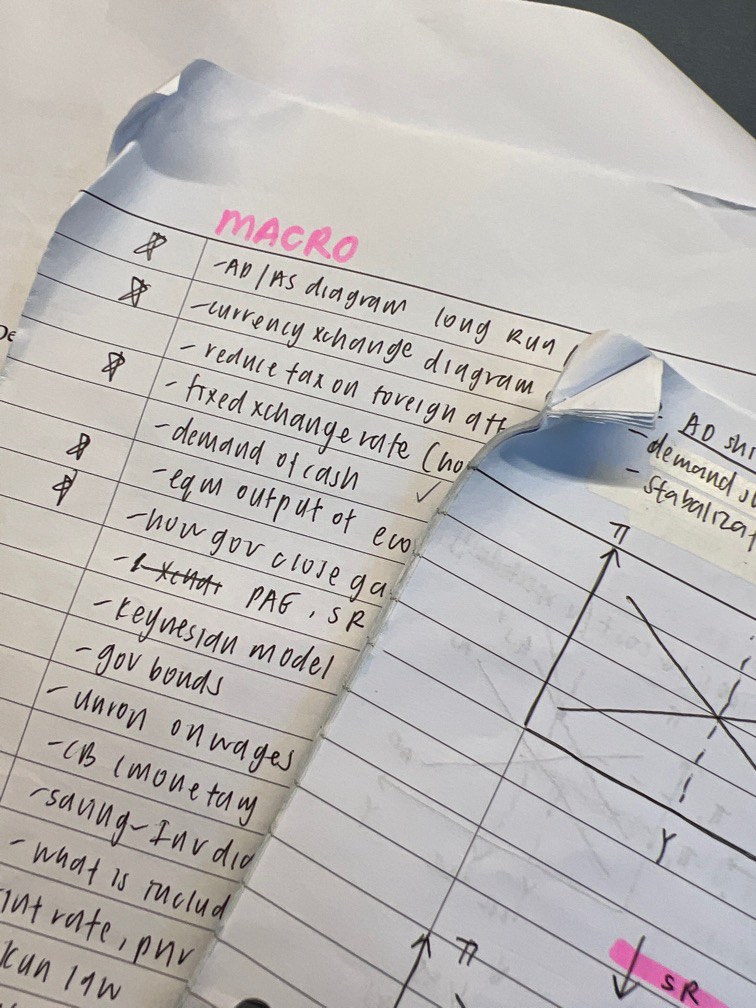 MACRO
-AD/AS diagram long run
-currency xchange diagram
- reduce tax on foreign
- fixed xchange rate
-demand of cash ✓
-eqm output of
-how gov close
- PAE, SR
-keynesian model
-gov bonds
-union on wages
-CB (monetary
-saving-Inv
-what is
int rate,
kun law
AD
-demand
-
π
Y
π
SR